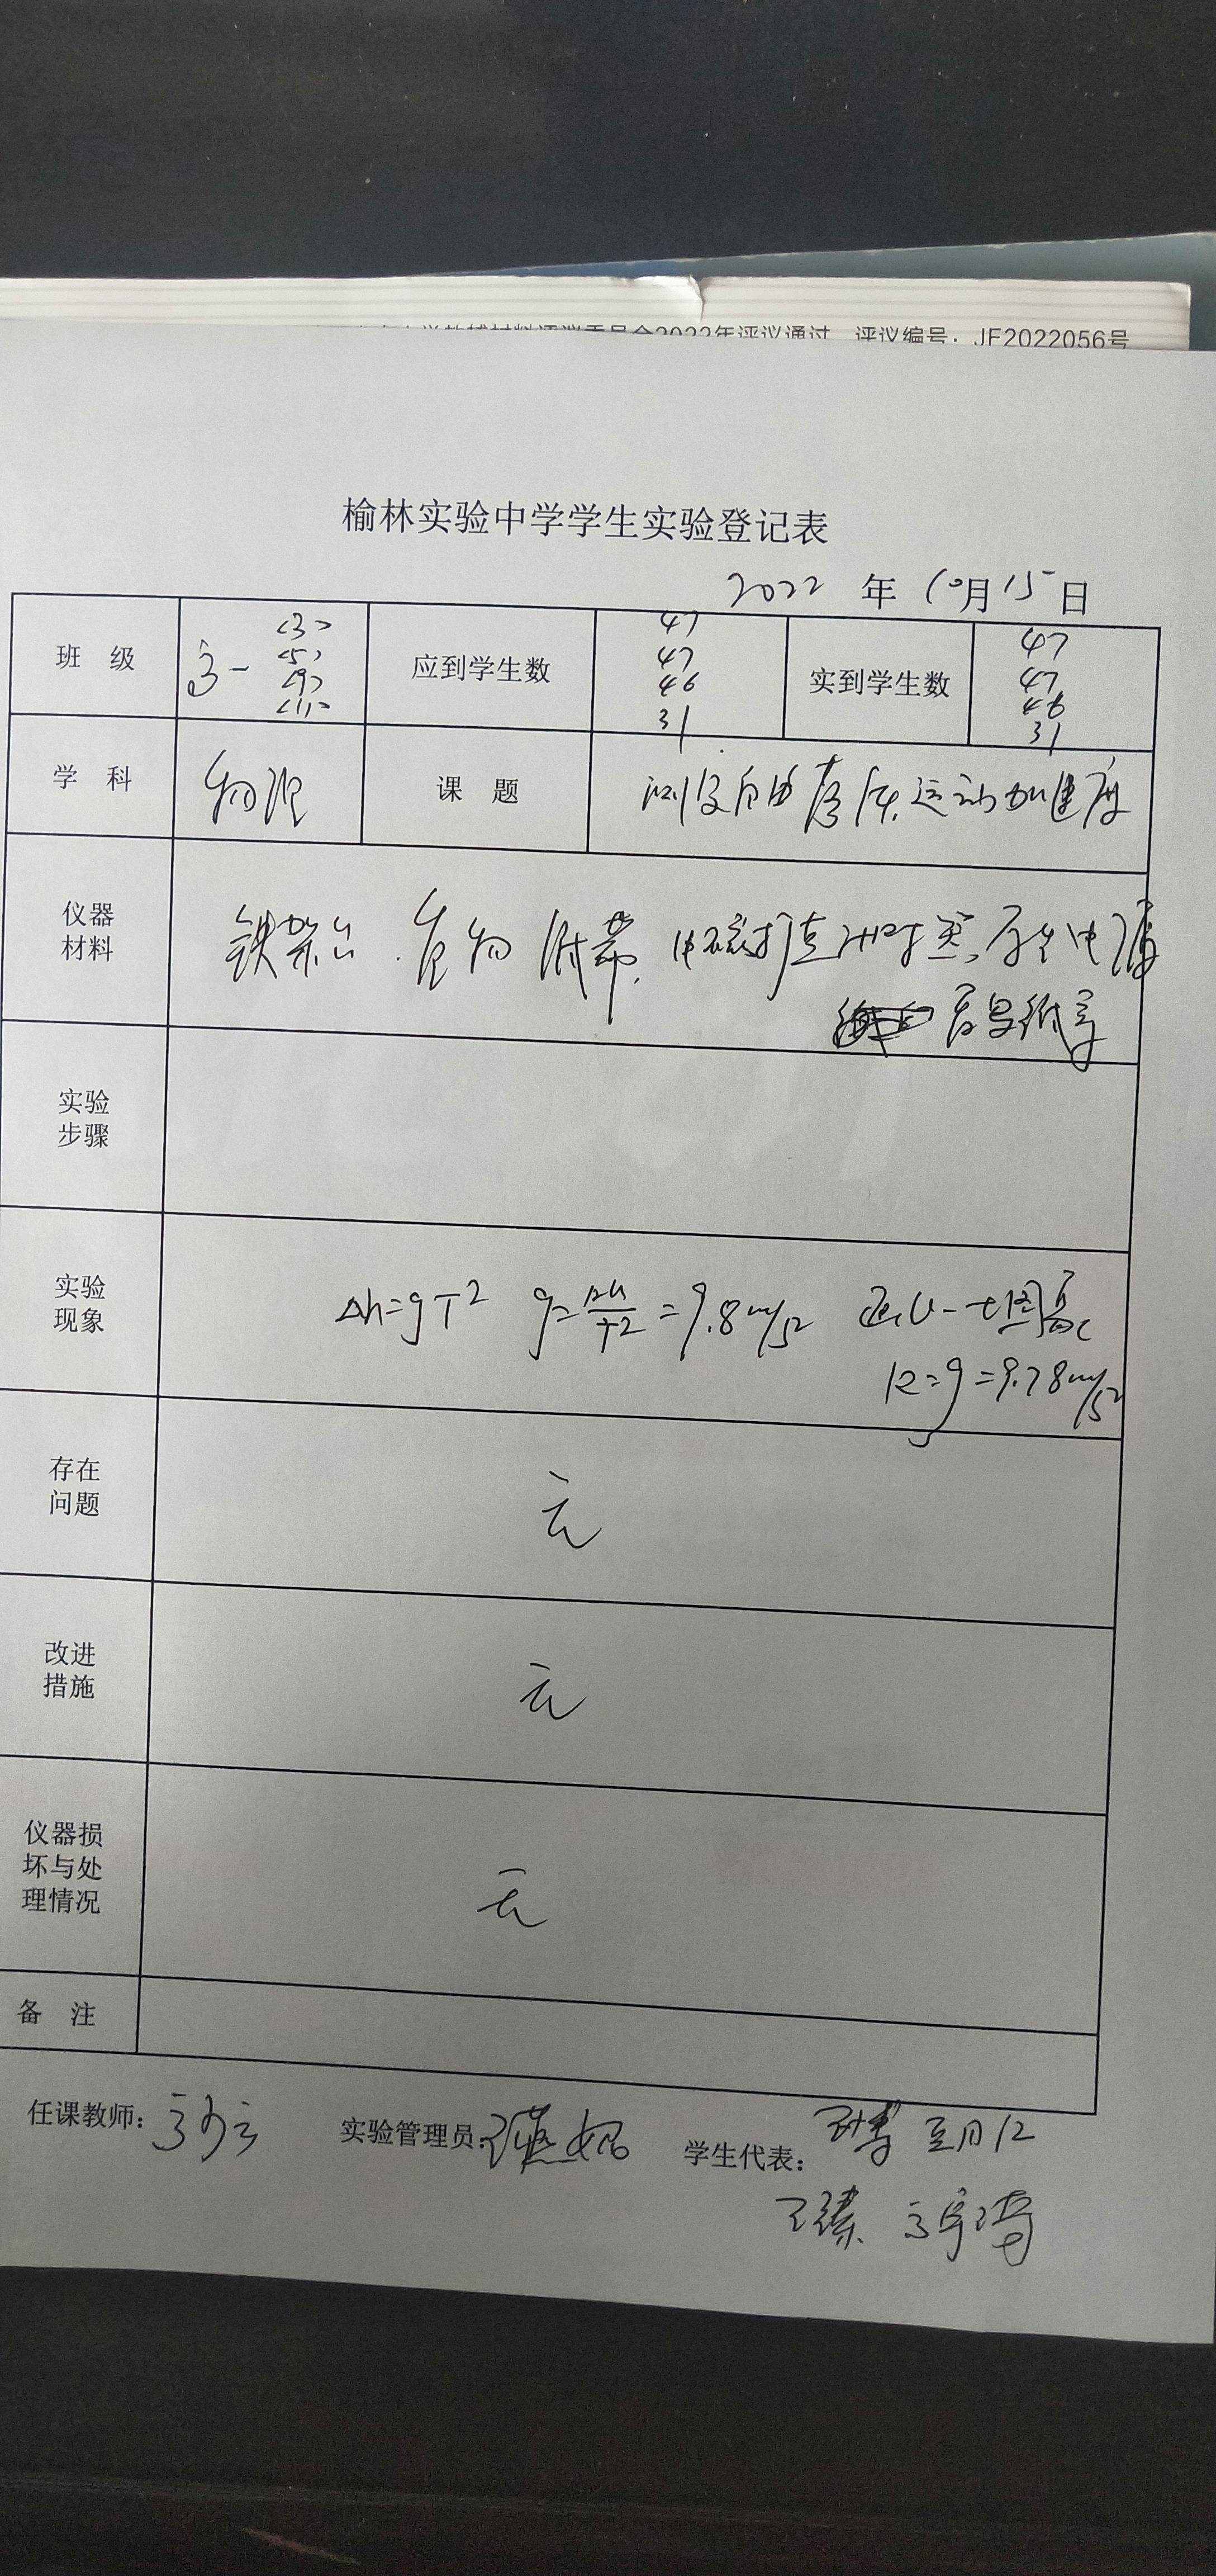 中学教辅材料评议委员会2022年评议通过 评议编号:JF2022056号
榆林实验中学学生实验登记表
2022 年 10月15日
班 级 高一 <3> <5> <9> <11> 应到学生数 47 47 46 31 实到学生数 47 47 46 31
学 科 物理 课 题 测定自由落体运动加速度
仪器材料 铁架台 重物 纸带 电磁打点计时器 学生电源
复写纸等
实验步骤
实验现象 Δh=gT² g=Δh/T²=9.8m/s² 画v-t图高
k=g=9.78m/s²
存在问题 无
改进措施 无
仪器损坏与处理情况 无
备 注
任课教师: 实验管理员: 学生代表: